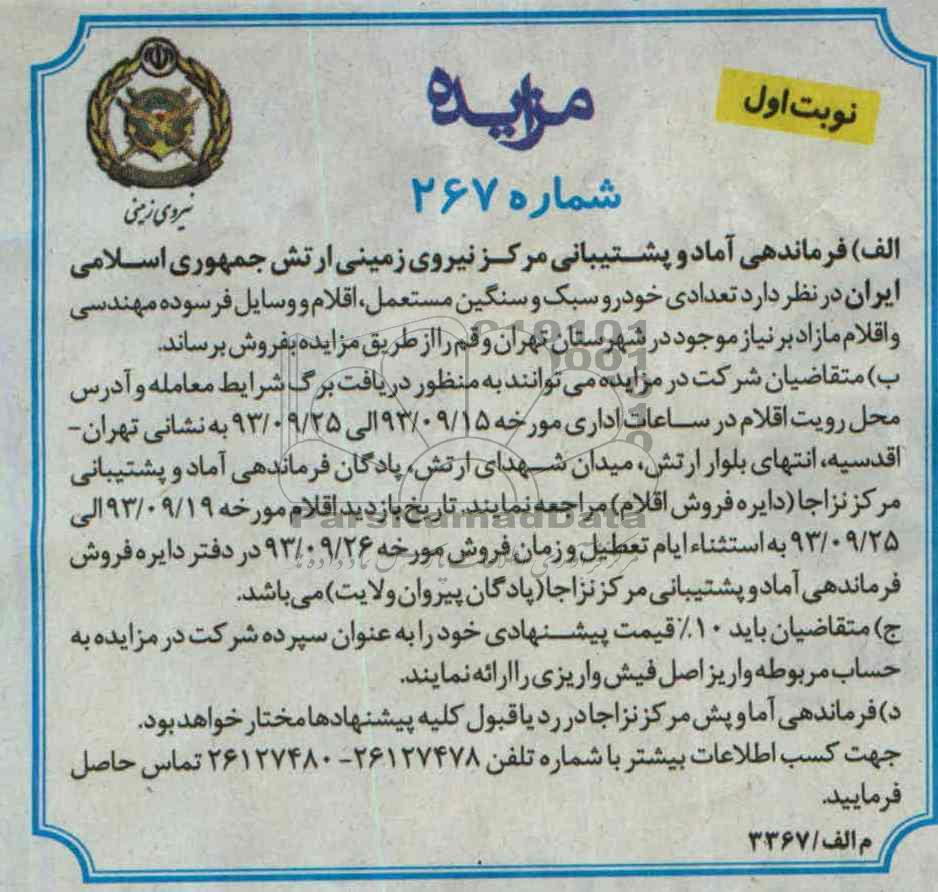 نوبت اول
مزایده
شماره ۲۶۷
نیروی زمینی
الف) فرماندهی آماد و پشتیبانی مرکز نیروی زمینی ارتش جمهوری اسلامی
ایران در نظر دارد تعدادی خودرو سبک و سنگین مستعمل، اقلام و وسایل فرسوده مهندسی
و اقلام مازاد بر نیاز موجود در شهرستان تهران و قم را از طریق مزایده بفروش برساند.
ب) متقاضیان شرکت در مزایده می توانند به منظور دریافت برگ شرایط معامله و آدرس
محل رویت اقلام در ساعات اداری مورخه ۹۳/۰۹/۱۵ الی ۹۳/۰۹/۲۵ به نشانی تهران-
اقدسیه، انتهای بلوار ارتش، میدان شهدای ارتش، پادگان فرماندهی آماد و پشتیبانی
مرکز نزاجا (دایره فروش اقلام) مراجعه نمایند. تاریخ بازدید اقلام مورخه ۹۳/۰۹/۱۹ الی
۹۳/۰۹/۲۵ به استثناء ایام تعطیل و زمان فروش مورخه ۹۳/۰۹/۲۶ در دفتر دایره فروش
فرماندهی آماد و پشتیبانی مرکز نزاجا (پادگان پیروان ولایت) می باشد.
ج) متقاضیان باید ۱۰٪ قیمت پیشنهادی خود را به عنوان سپرده شرکت در مزایده به
حساب مربوطه واریز اصل فیش واریزی را ارائه نمایند.
د) فرماندهی آماوپش مرکز نزاجا در رد یا قبول کلیه پیشنهادها مختار خواهد بود.
جهت کسب اطلاعات بیشتر با شماره تلفن ۲۶۱۲۷۴۷۸- ۲۶۱۲۷۴۸۰ تماس حاصل
فرمایید.
م الف/۳۳۶۷
ParsNamadData